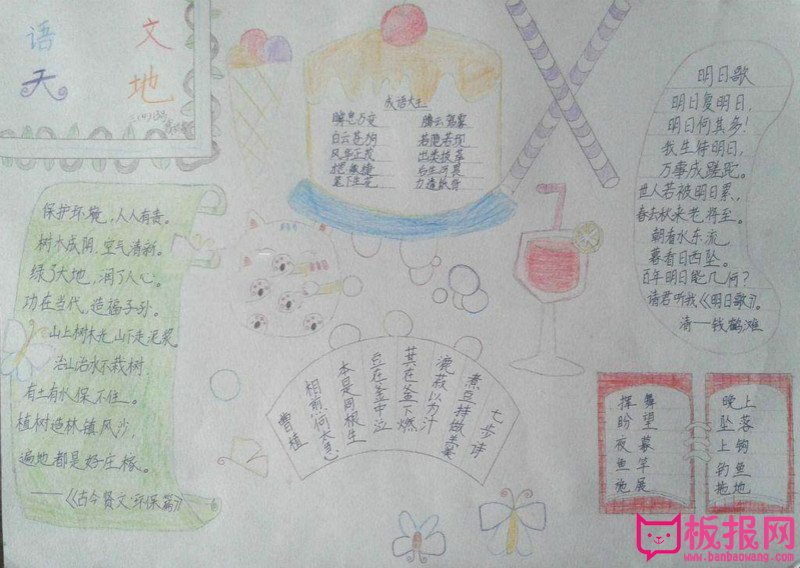 语文
天地
保护环境,人人有责。
树木成阴,空气清新。
绿了大地,润了人心。
功在当代,造福子孙。
山上树木光,山下走泥浆
治山治水不栽树
有土有水保不住。
植树造林,镇风沙,
遍地都是好庄稼。
——《古今贤文·环保篇》
成语大王
瞬息万变
腾云驾雾
白云苍狗
若隐若现
风华正茂
出类拔萃
后生可畏
笔下生花
力透纸背
七步诗
煮豆持做羹
漉菽以为汁
萁在釜下燃
豆在釜中泣
本是同根生
相煎何太急
曹植
明日歌
明日复明日,
明日何其多!
我生待明日,
万事成蹉跎。
世人若被明日累,
春去秋来老将至。
朝看水东流,
暮看日西坠。
百年明日能几何?
请君听我《明日歌》。
清——钱鹤滩
挥舞
盼望
夜幕
鱼竿
施展
晚上
坠落
上钩
钓鱼
拖地
板报网
www.banbaowang.com